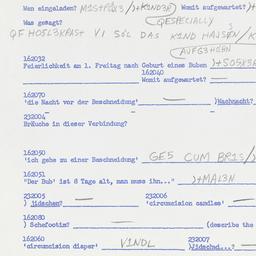 Wen eingeladen? Womit aufgewartet?
Was gesagt? QESPECIALLY
VI DAS KIND
162032
Feierlichkeit am 1. Freitag nach Geburt eines Buben
162040
Womit aufgewartet? —
162070
'die Nacht vor der Beschneidung' — )Wachnacht?
232004
Bräuche in dieser Verbindung?
162050
'ich gehe zu einer Beschneidung' GE5 CUM BRIS/
162051
"Der Bub' ist 8 Tage alt, man muss ihn..." )+MAL3N
232005 232006
) jidschen? — 'circumcision candles' —
162080
) Schefoofim? — (describe the
162060 232007
'circumcision diaper' VINDL )Jidschd...?